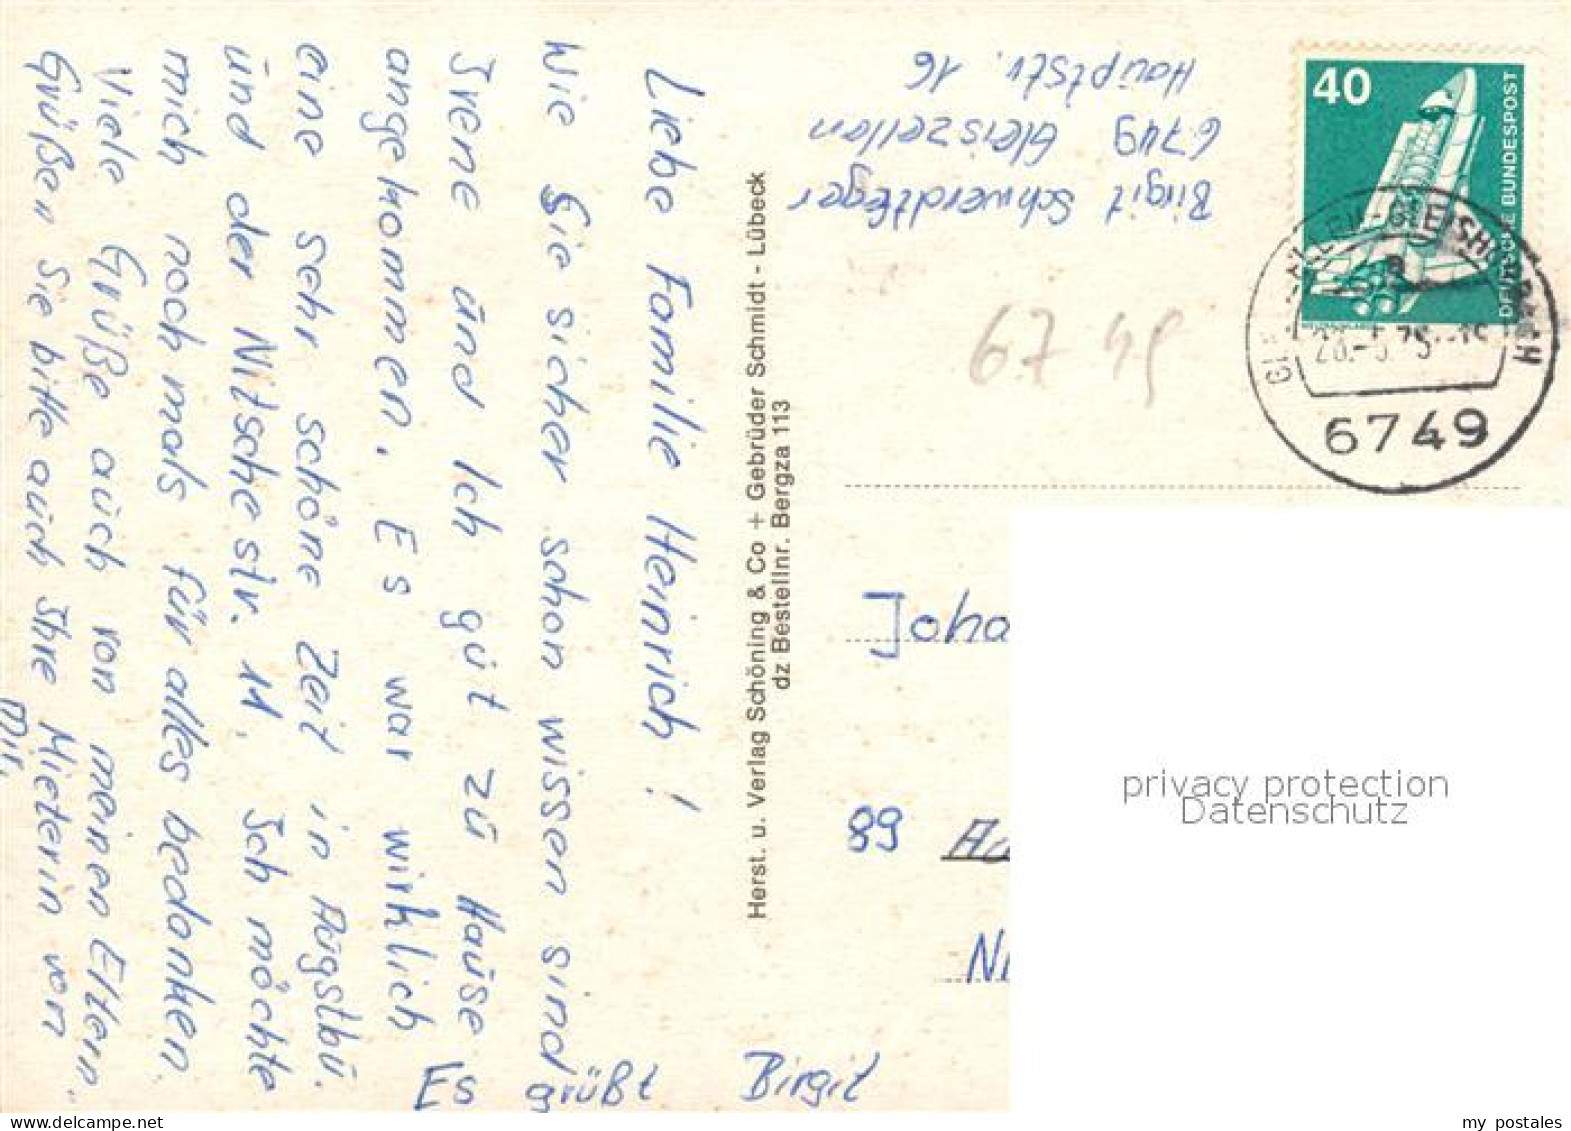 Liebe Familie Heinrich!
Wie Sie sicher schon wissen sind
Irene und Ich gut zu Hause
angekommen. Es war wirklich
eine sehr schöne Zeit in Augstbu.
und der Nitschestr. 11. Ich möchte
mich nochmals für alles bedanken
Viele Grüße auch von meinen Eltern.
Grüßen Sie bitte auch Ihre Mieterin von
mir.
Es grüßt Birgit
Herst. u. Verlag Schöning & Co + Gebrüder Schmidt - Lübeck
dz Bestellnr. Bergza 113
Birgit Schwerdtfeger
6749 Gleiszellen
Hauptstr. 16
40
DEUTSCHE BUNDESPOST
6749
67 49
Joha
89 Au
Ni
privacy protection
Datenschutz
my postales